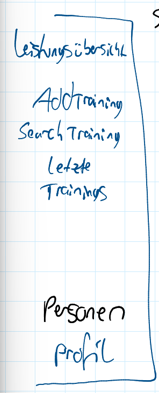 Leistungsübersicht
AddTraining
Search Training
Letzte
Trainings
Personen
Profil